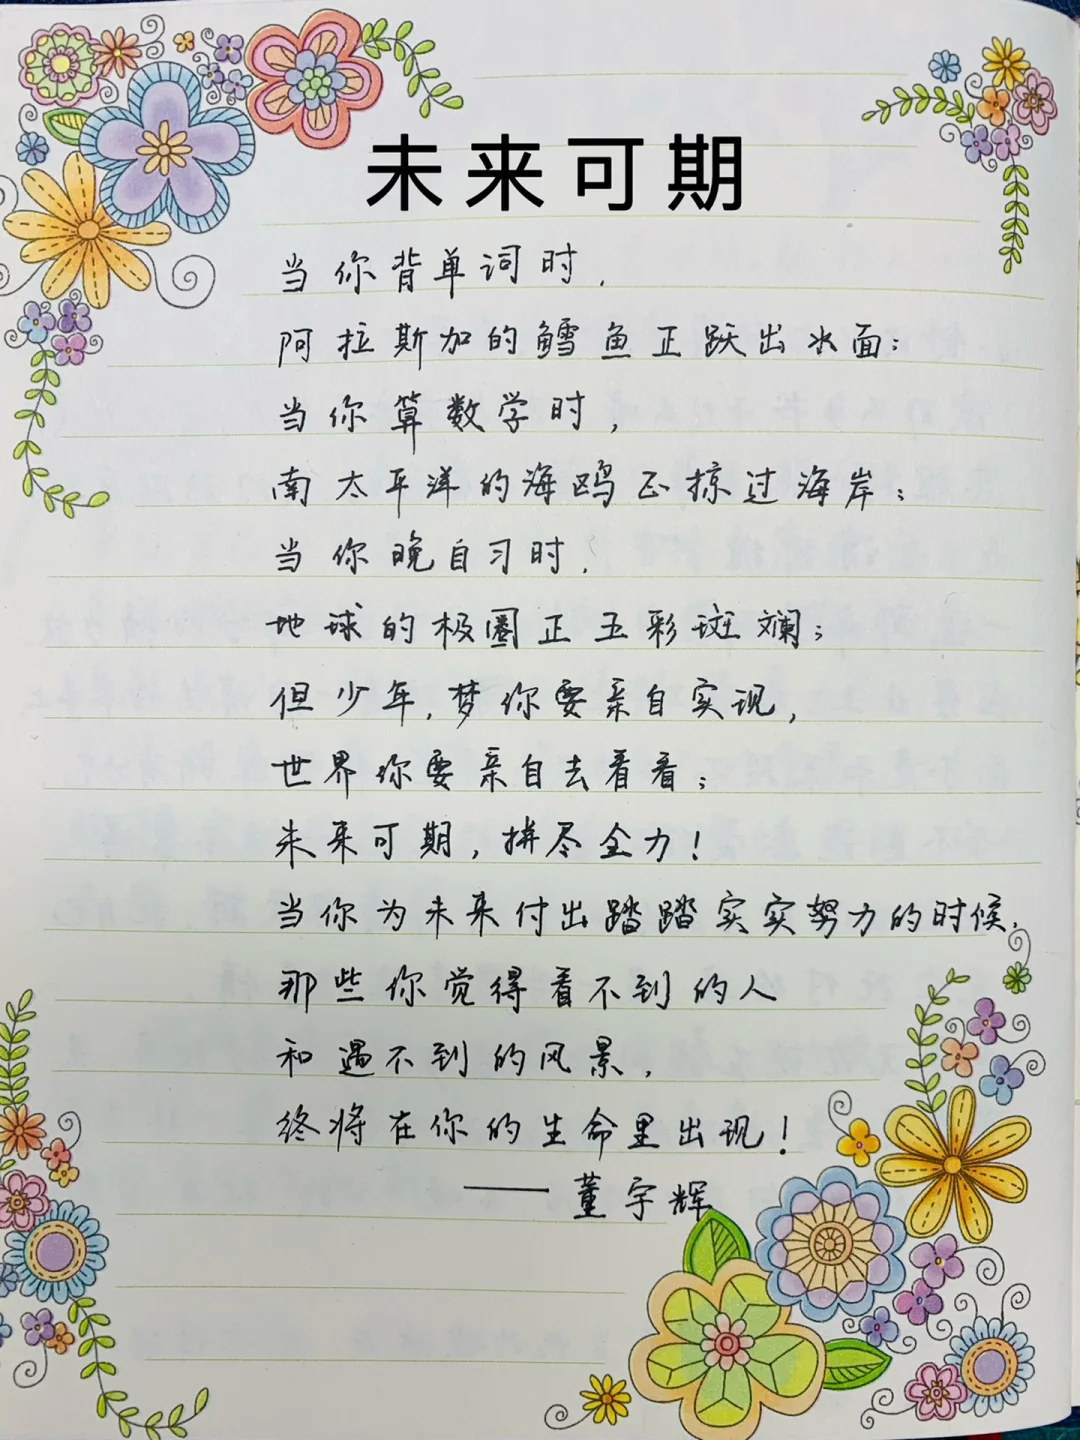 未来可期
当你背单词时,
阿拉斯加的鳕鱼正跃出水面;
当你算数学时,
南太平洋的海鸥正掠过海岸;
当你晚自习时,
地球的极圈正五彩斑斓;
但少年,梦你要亲自实现,
世界你要亲自去看看;
未来可期,拼尽全力!
当你为未来付出踏踏实实努力的时候,
那些你觉得看不到的人
和遇不到的风景,
终将在你的生命里出现!
——董宇辉